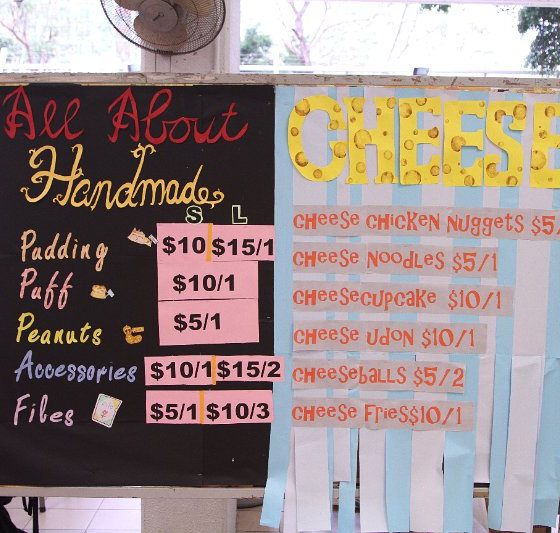 All About
Handmade
S L
Pudding $10 $15/1
Puff $10/1
Peanuts $5/1
Accessories $10/1 $15/2
Files $5/1 $10/3
CHEESE
CHEESE CHICKEN NUGGETS $5/
CHEESE NOODLES $5/1
CHEESECUPCAKE $10/1
CHEESE UDON $10/1
CHEESEBALLS $5/2
CHEESE FRIES$10/1